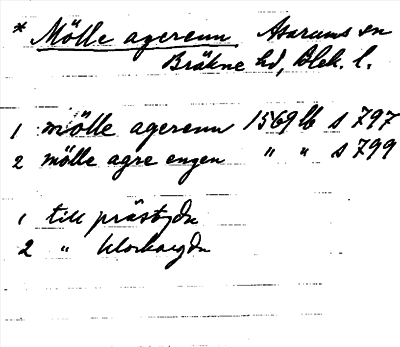 * Mölle agerenn Asarums sn
Bräkne hd, Blek. l.
1 mölle agerenn 1569 lb s 797
2 mölle agre engen " " s 799
1 till prästgdn
2 " klockaregdn